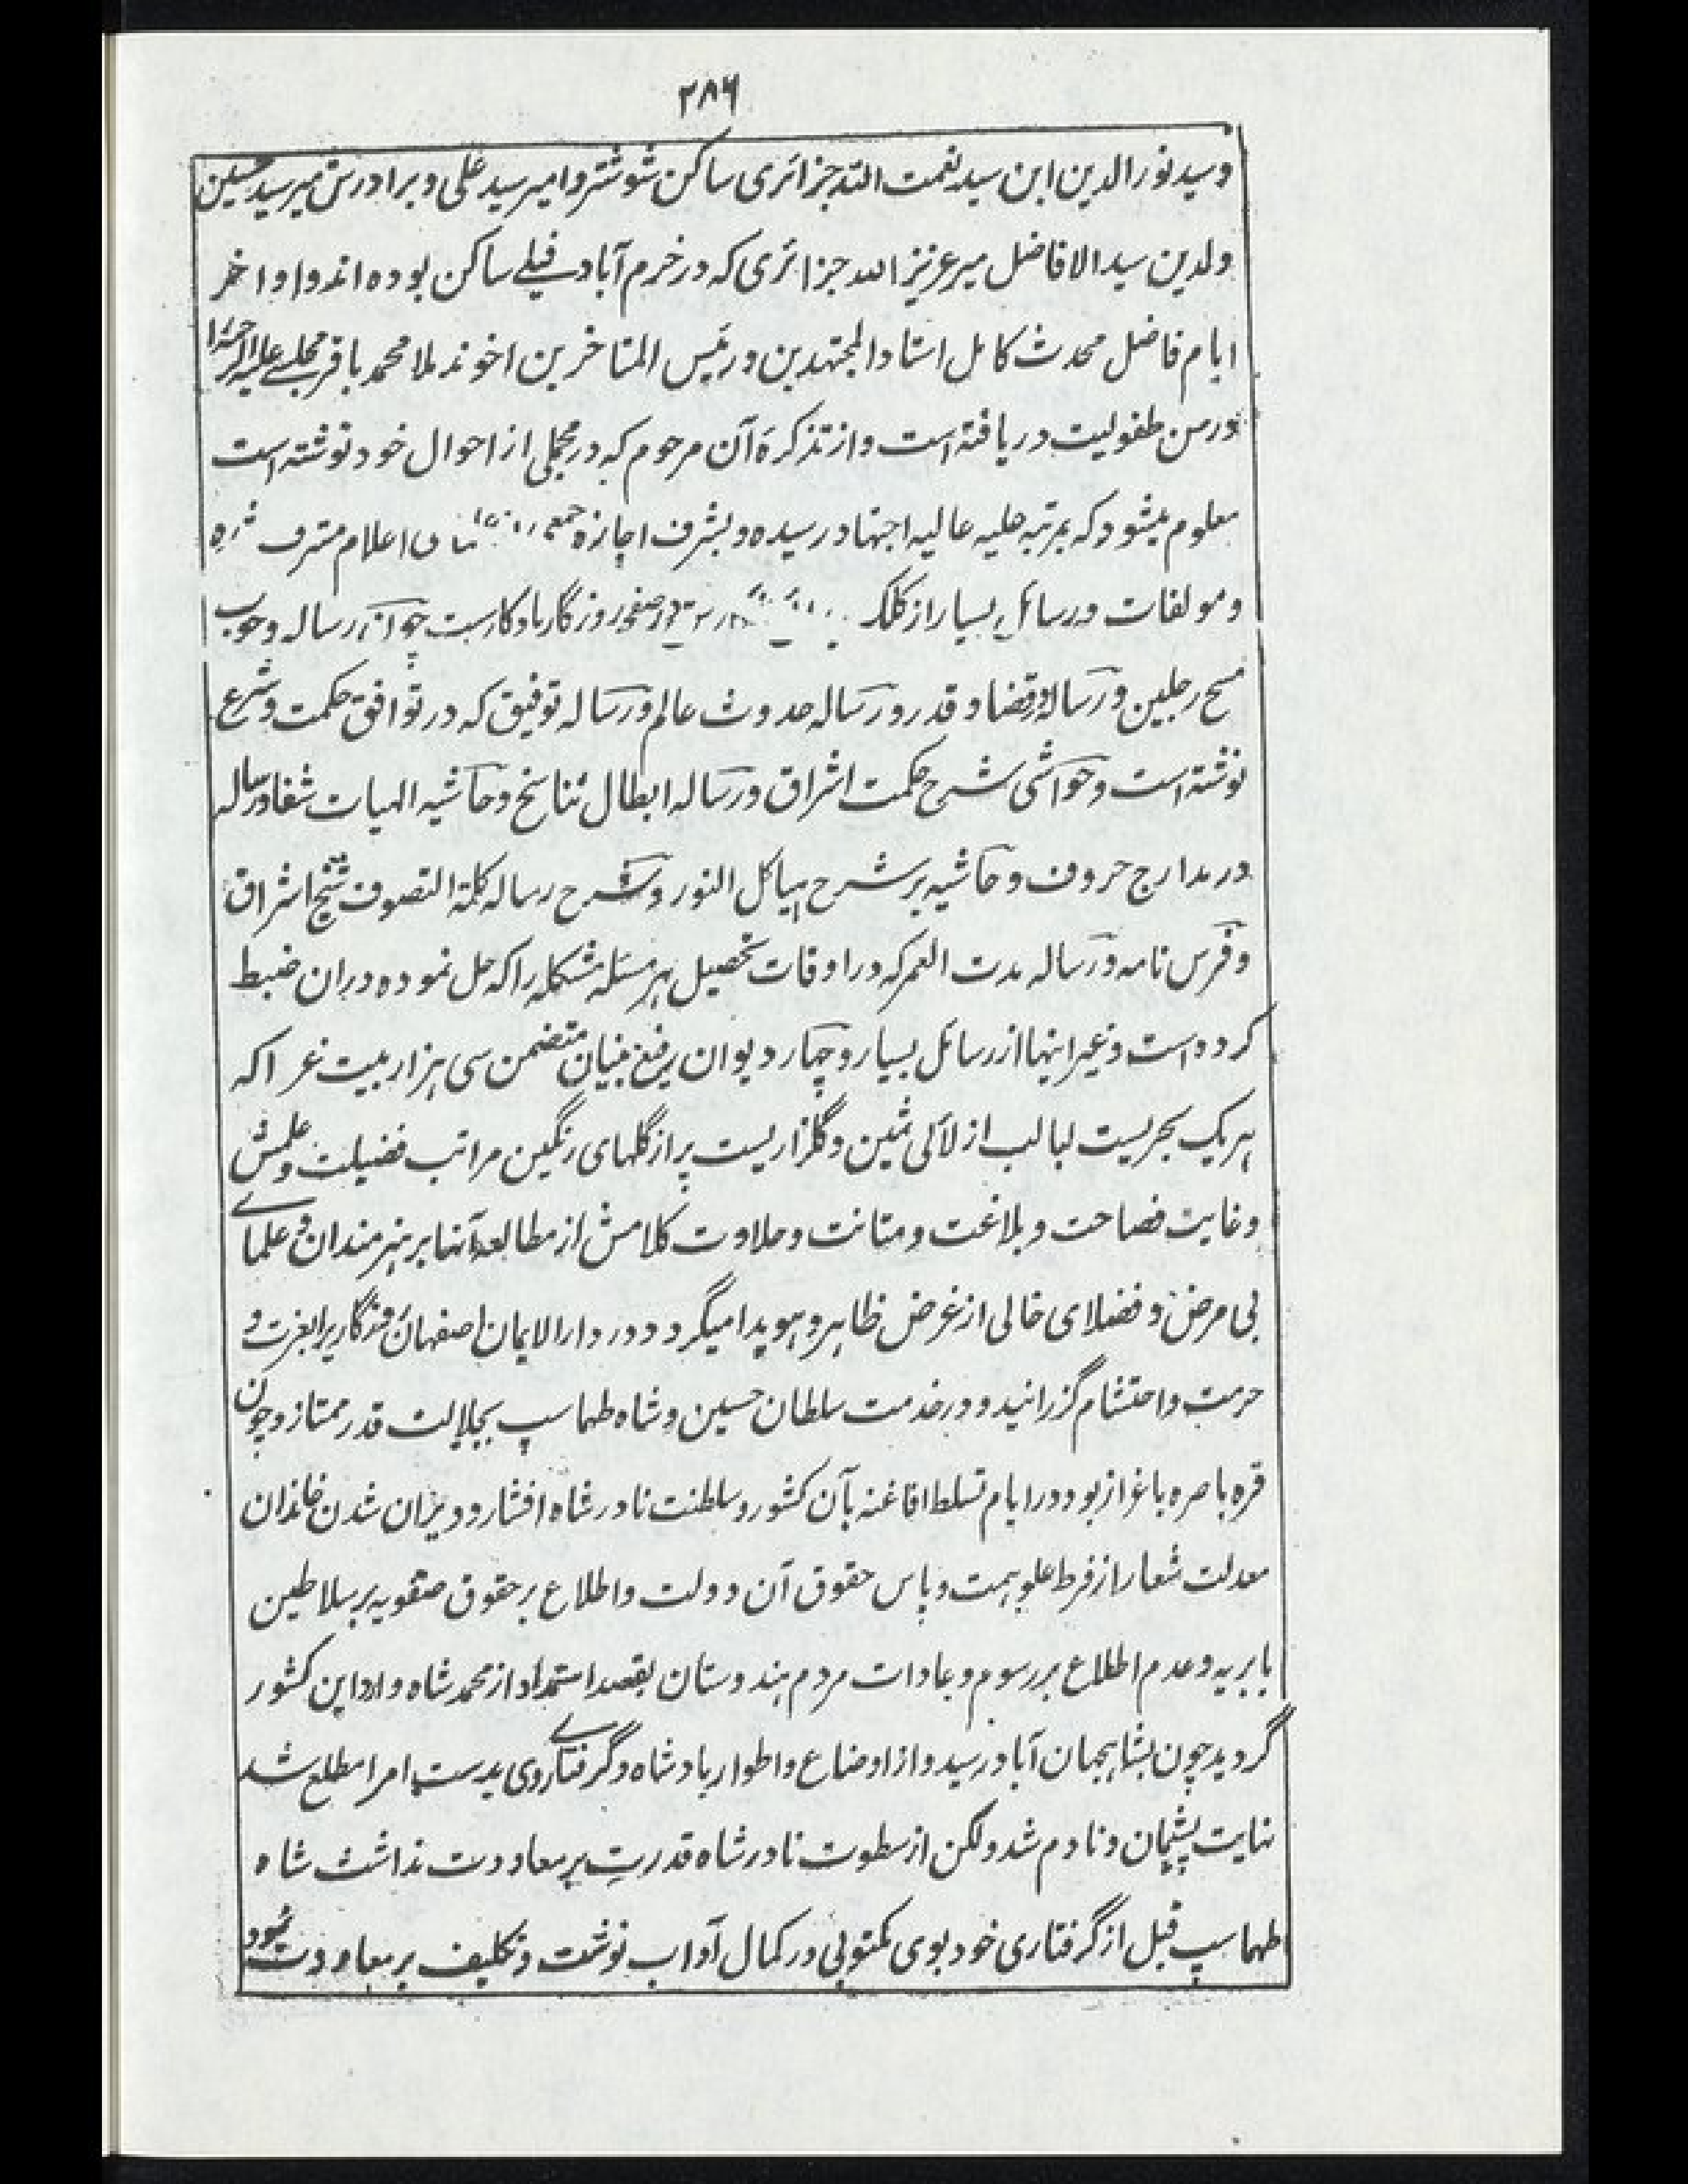 ۲۸۶
وسید نورالدین ابن سید نعمت الله جزائری ساکن شوشتر و امیر سید علی و برادرش میر سید حسین
ولدین سید الافاضل میر عزیز الله جزائری که در خرم آباد فیلے ساکن بوده اند و اواخر
ایام فاضل محدث کامل استاد المجتهدین و رئیس المتاخرین اخوند ملا محمد باقر مجلسے علیه الرحمه را
در سن طفولیت دریافته است و از تذکرهٔ آن مرحوم که در مجملی از احوال خود نوشته است
معلوم میشود که بمرتبه علیه عالیه اجتهاد رسیده و بشرف اجازه جمعی اعلام مشرف شده
و مولفات و رسائل بسیار از کلک صفحه روزگار یادگارست چون رساله وجوب
مسح رجلین و رساله در قضا و قدر و رساله حدوث عالم و رساله توفیق که در توافق حکمت و شرع
نوشته است و حواشی شرح حکمت اشراق و رساله ابطال تناسخ و حاشیه الهیات شفا و رساله
در مدارج حروف و حاشیه بر شرح هیاکل النور و شرح رساله کلمة التصوف شیخ اشراق
و فرس نامه و رساله مدت العمر که در اوقات تحصیل هر مسئله مشکله را که حل نموده دران ضبط
کرده است و غیر اینها از رسائل بسیار و چهار دیوان رفیع بنیان متضمن سی هزار بیت غرا که
هر یک بحریست لبالب از لآلی ثمین و گلزاریست پر از گلهای رنگین مراتب فضیلت و علمش
و غایت فصاحت و بلاغت و متانت و حلاوت کلامش از مطالعه آنها بر هنرمندان و علماے
بی مرض و فضلای خالی از غرض ظاهر و هویدا میگردد و در دارالایمان اصفهان روزگار را بعزت و
حرمت و احتشام گزرانیده و در خدمت سلطان حسین و شاه طهماسپ بجلالت قدر ممتاز و چون
قره باصره باغزاز بود و در ایام تسلط افاغنه بآن کشور و سلطنت نادر شاه افشار و ویران شدن خاندان
معدلت شعار از فرط علو همت و پاس حقوق آن دولت و اطلاع بر حقوق صفویه بر سلاطین
بابریه و عدم اطلاع بر رسوم و عادات مردم هندوستان بقصد استمداد از محمد شاه وارد این کشور
گردید چون بشاهجهان آباد رسید و از اوضاع و اطوار پادشاه و گرفتارے وی بدست امرا مطلع شد
نهایت پشیمان و نادم شد و لکن از سطوت نادر شاه قدرت بر معاودت نداشت شاه
طهماسپ قبل از گرفتاری خود بوی مکتوبی در کمال آداب نوشت و تکلیف بر معاودت نمود